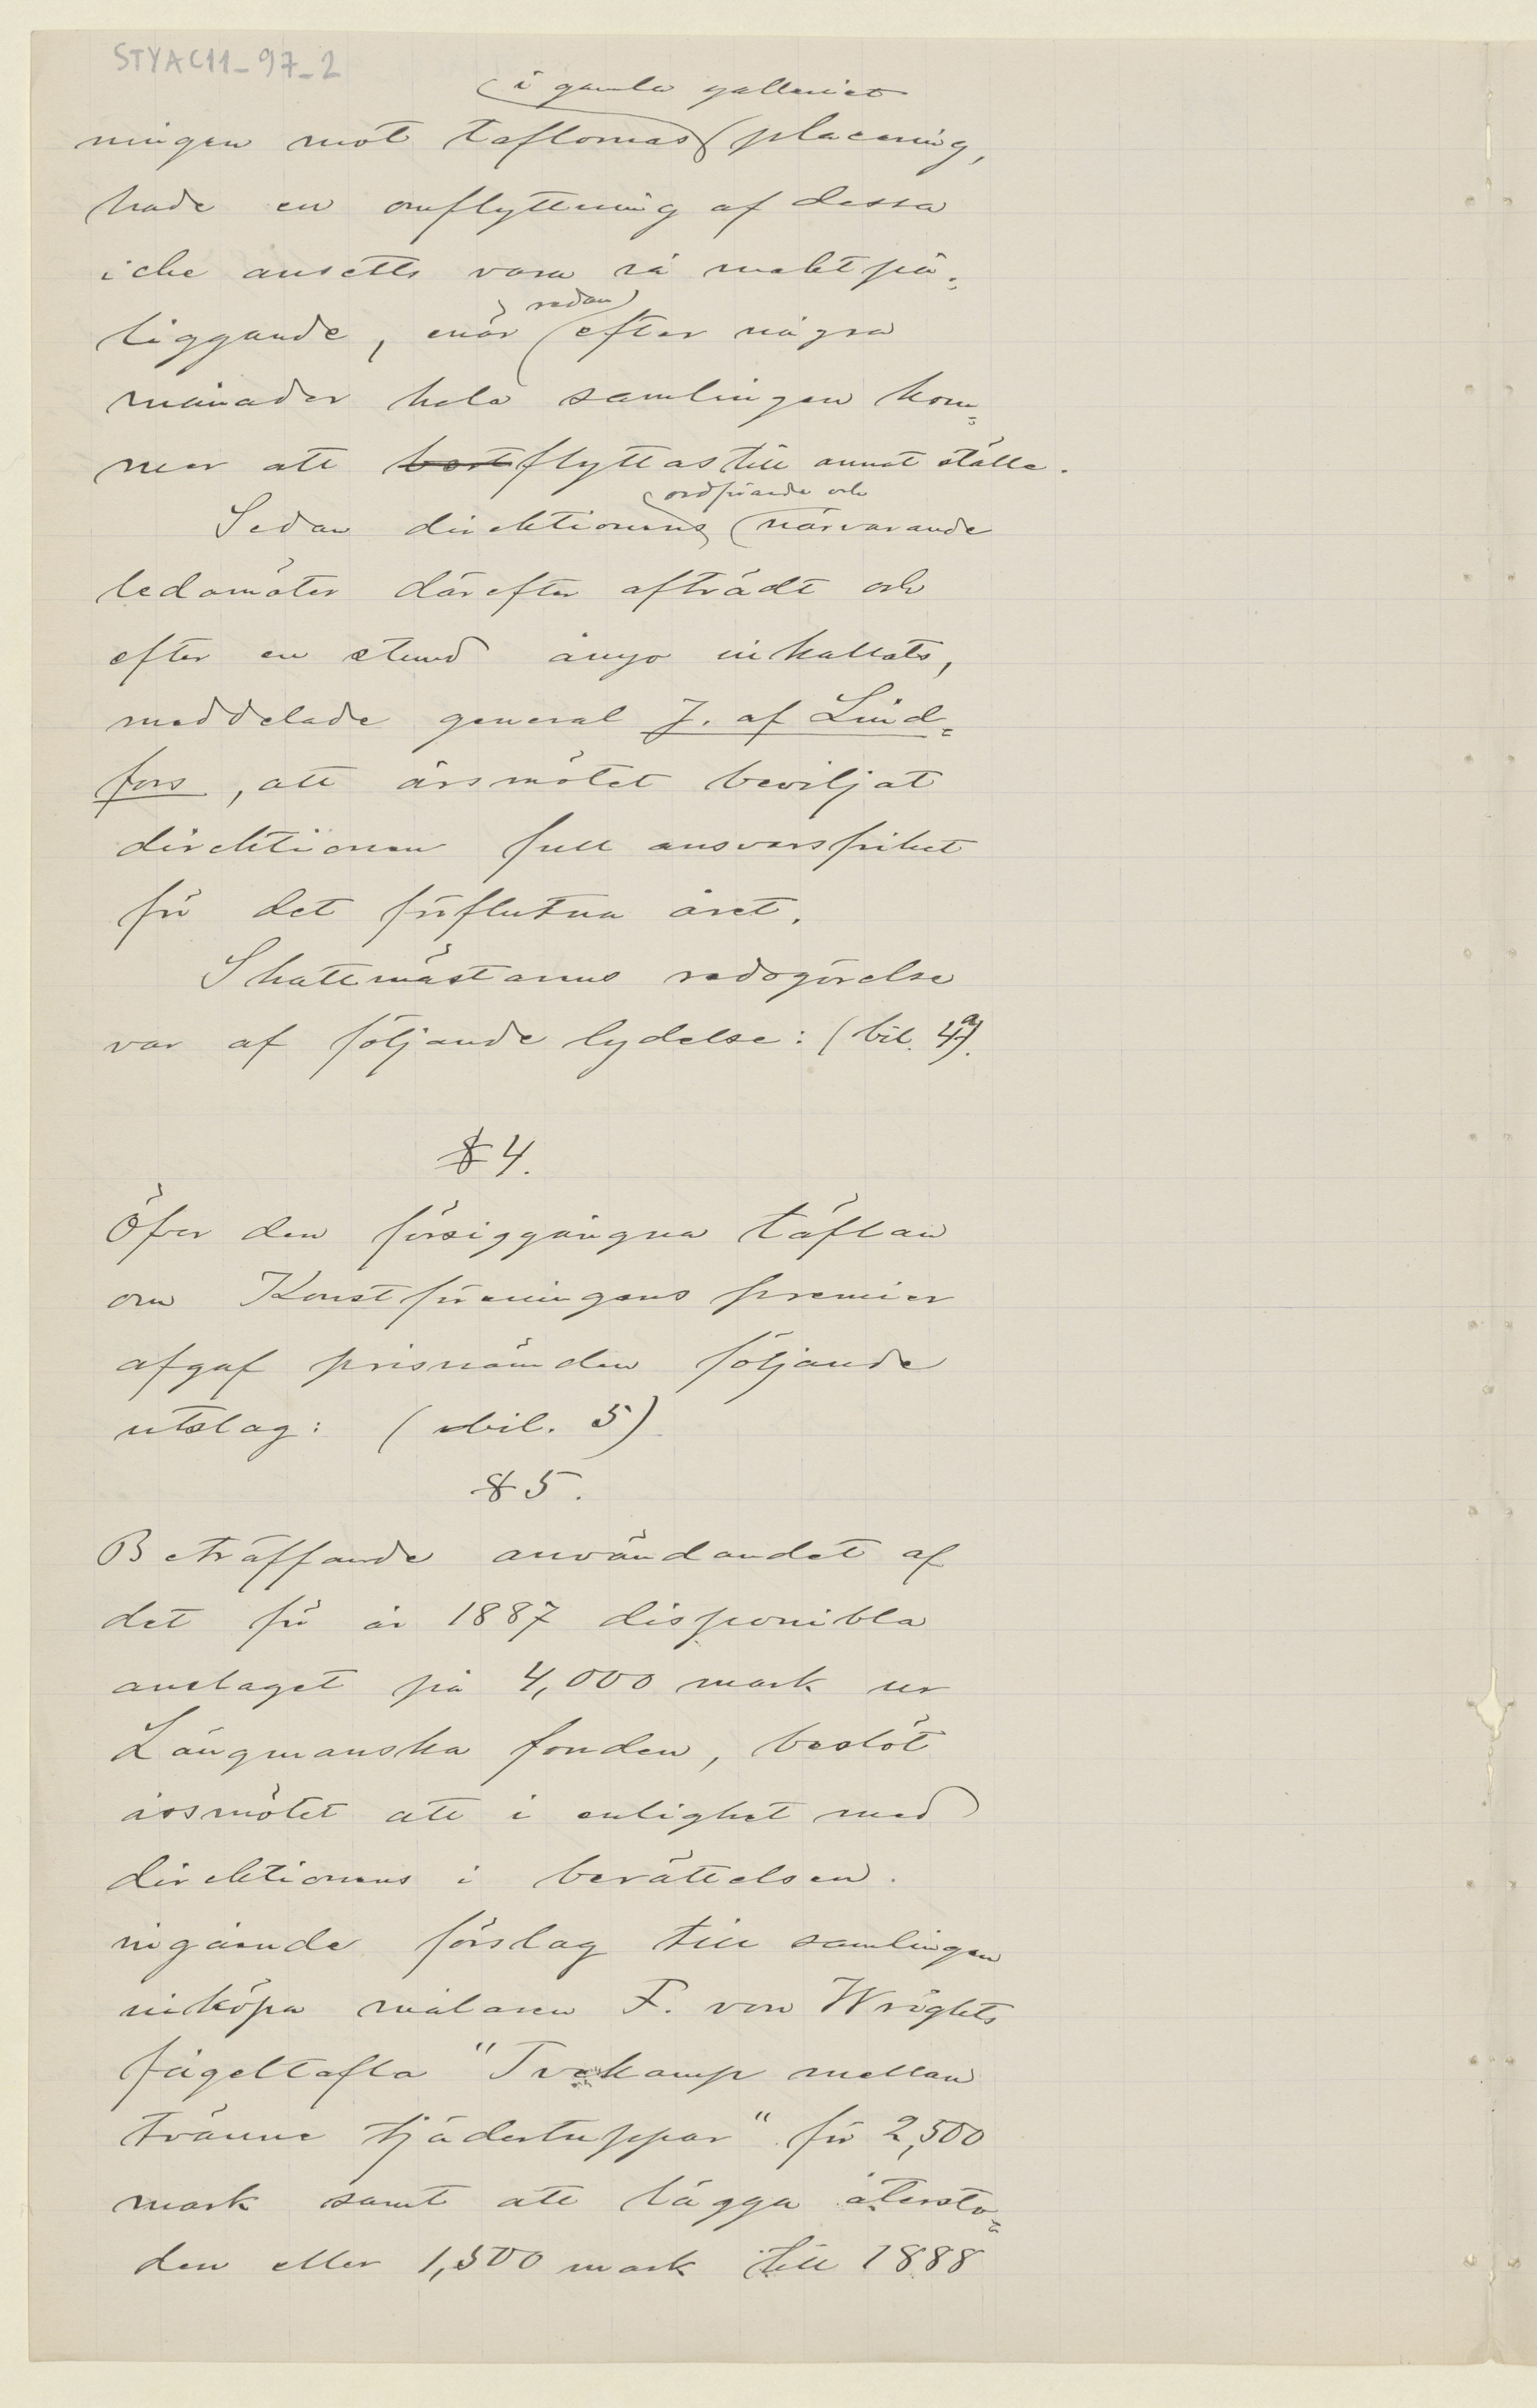 STYAC11_97_2
i gamla galleriet
ningen mot taflornas placering,
hade en omflyttning af dessa
icke ansetts vara så maktpå-
liggande, enär redan efter några
månader hela samlingen kom-
mer att bortflyttas till annat ställe.
ordförande och
Sedan direktionens närvarande
ledamöter därefter afträdt och
efter en stund ånyo inkallats,
meddelade general J. af Lind-
fors, att årsmötet beviljat
direktionen full ansvarsfrihet
för det förflutna året.
Skattmästarens redogörelse
var af följande lydelse: (bil. 4a).
§ 4.
Öfver den försiggångna täflan
om Konstföreningens premier
afgaf prisnämden följande
utslag: (bil. 5)
§ 5.
Beträffande användandet af
det för år 1887 disponibla
anslaget på 4,000 mark ur
Längmanska fonden, beslöt
årsmötet att i enlighet med
direktionens i berättelsen
ingående förslag till samlingen
inköpa målaren F. von Wrights
fågeltafla "Tvekamp mellan
tvänne tjädertuppar" för 2,500
mark samt att lägga återsto-
den eller 1,500 mark till 1888